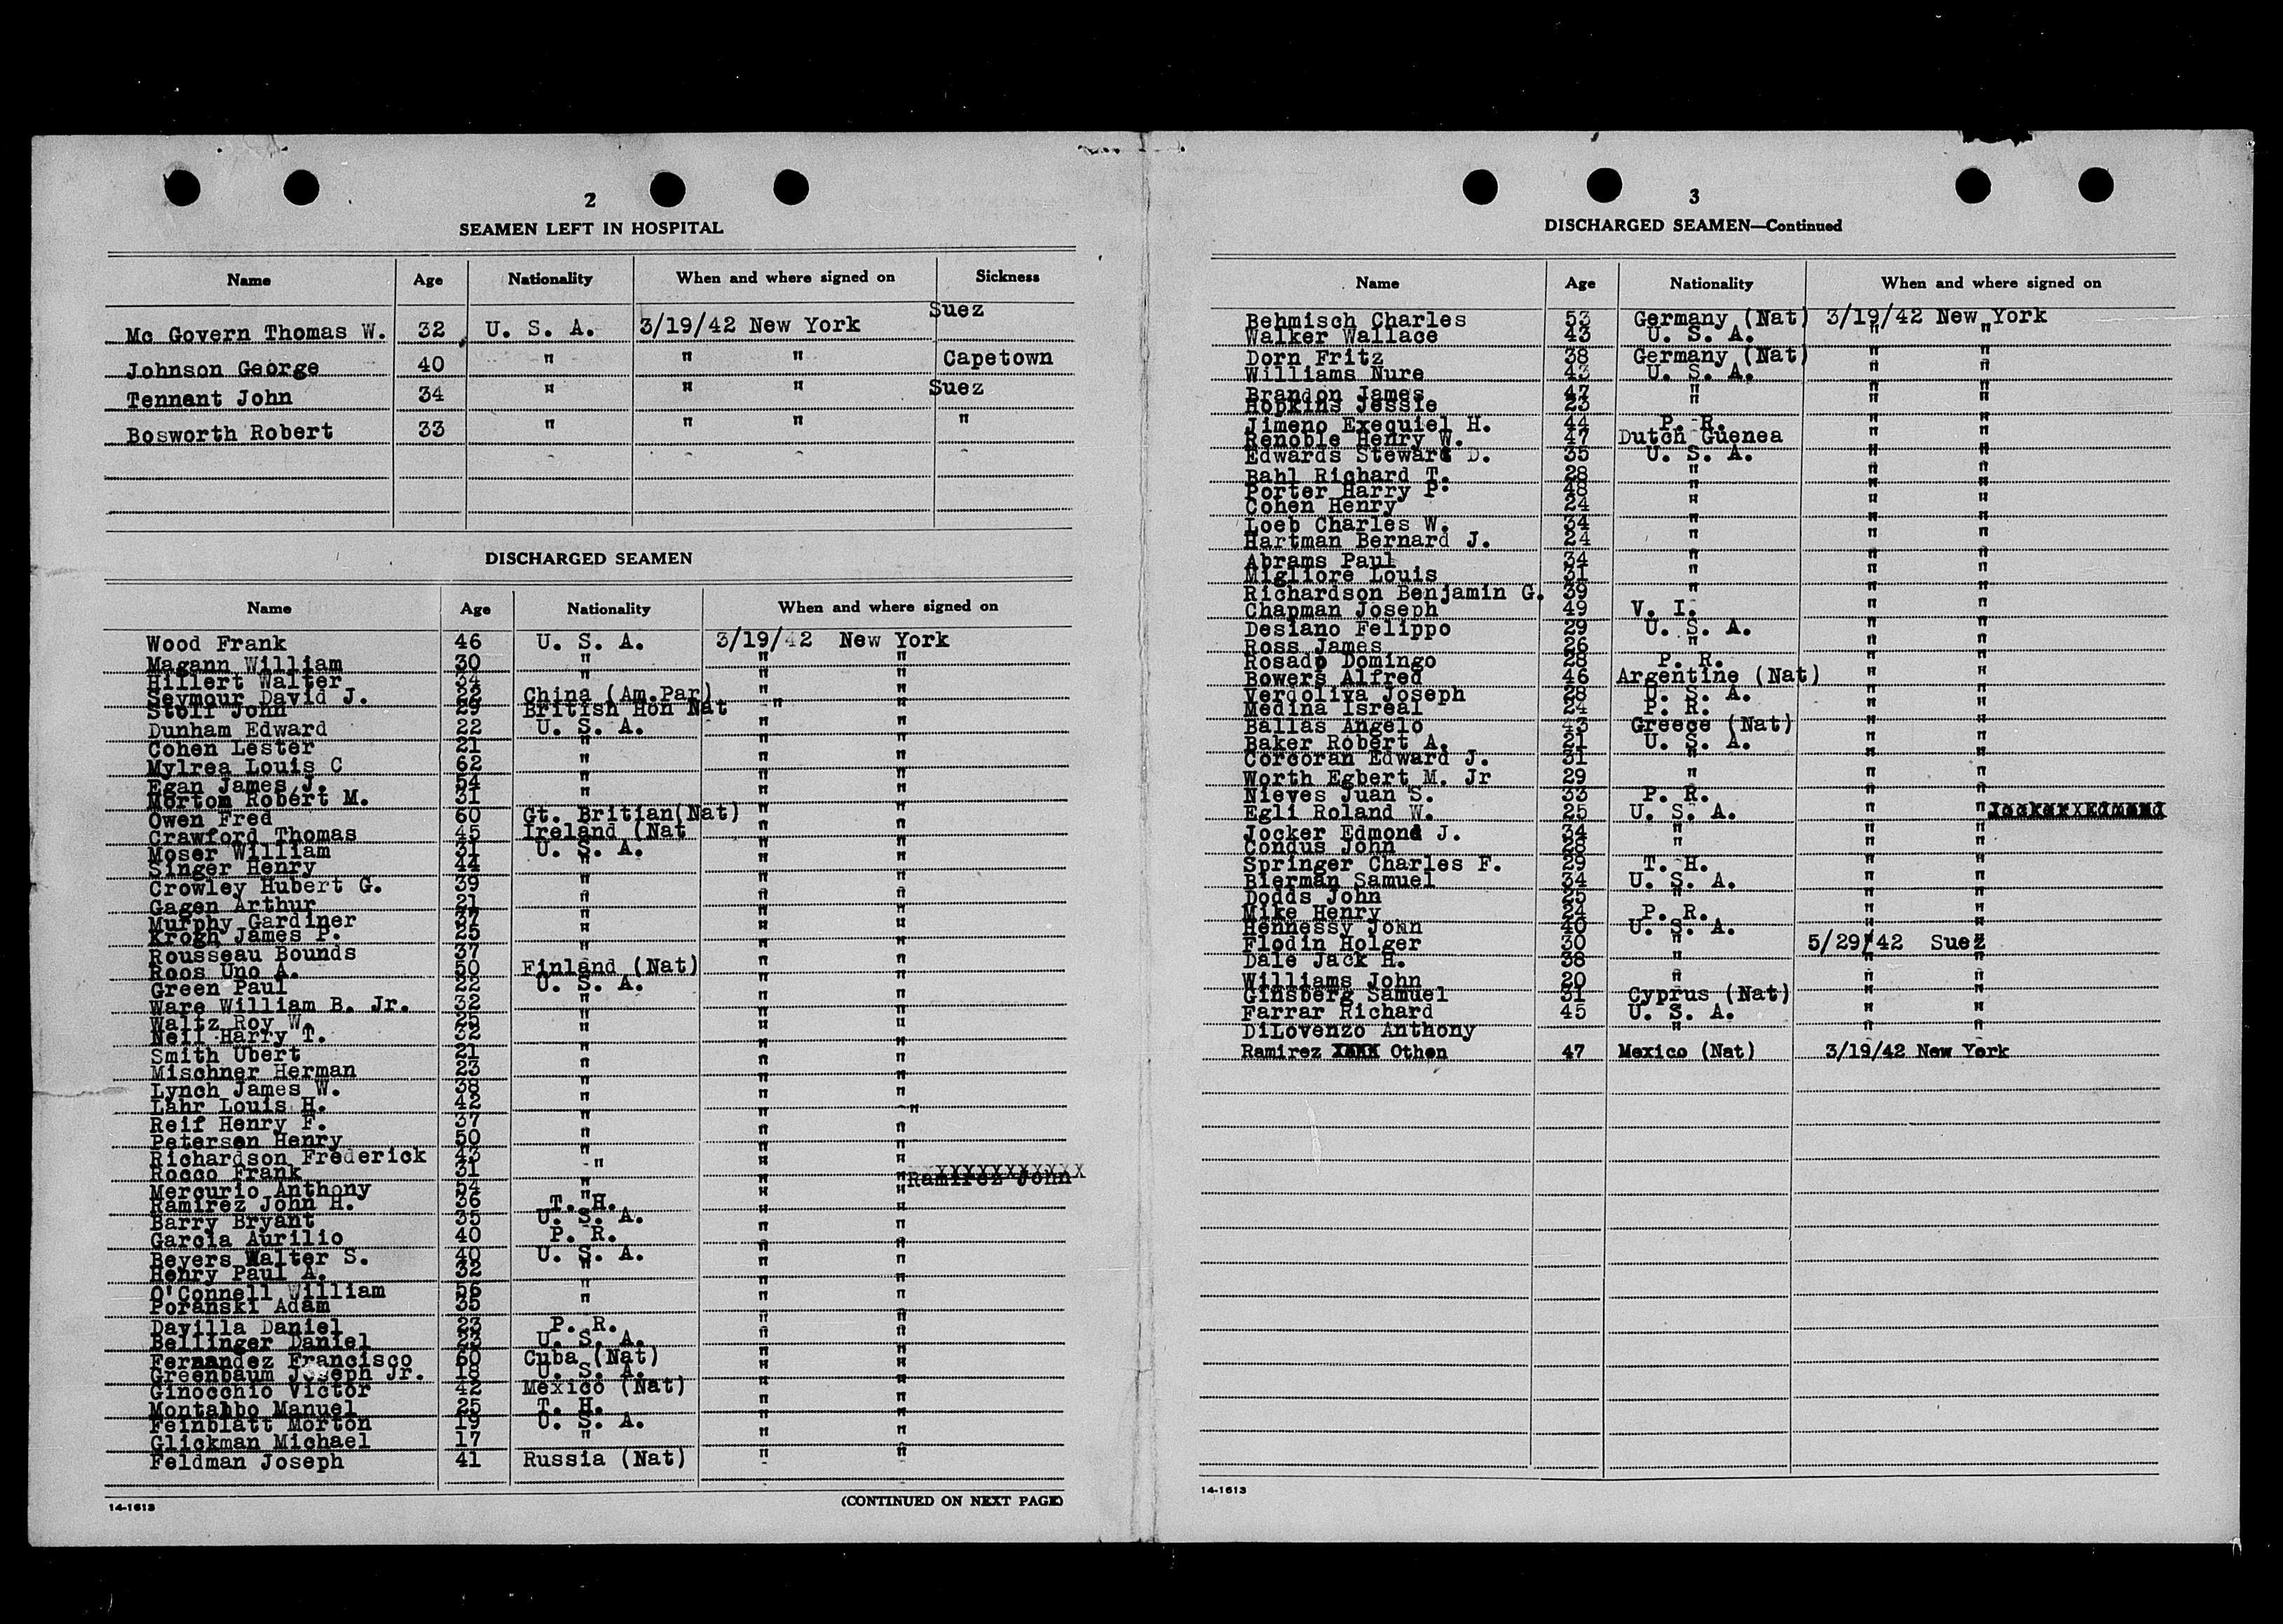 2
SEAMEN LEFT IN HOSPITAL
Name Age Nationality When and where signed on Sickness
Mc Govern Thomas W. 32 U. S. A. 3/19/42 New York Suez
Johnson George 40 " " " Capetown
Tennant John 34 " " " Suez
Bosworth Robert 33 " " " "
DISCHARGED SEAMEN
Name Age Nationality When and where signed on
Wood Frank 46 U. S. A. 3/19/42 New York
Magann William 30 " " "
Hillert Walter 34 " " "
Seymour David J. 22 China (Am.Par) " "
Stoll John 29 British Hon Nat " "
Dunham Edward 22 U. S. A. " "
Cohen Lester 21 " " "
Mylrea Louis C 62 " " "
Egan James J. 54 " " "
Morton Robert M. 31 " " "
Owen Fred 60 Gt. Britian(Nat) " "
Crawford Thomas 45 Ireland (Nat " "
Moser William 31 U. S. A. " "
Singer Henry 44 " " "
Crowley Hubert G. 39 " " "
Gagen Arthur 21 " " "
Murphy Gardiner 37 " " "
Krogh James P. 25 " " "
Rousseau Bounds 37 " " "
Roos Uno A. 50 Finland (Nat) " "
Green Paul 22 U. S. A. " "
Ware William B. Jr. 32 " " "
Waltz Roy W. 25 " " "
Neil Harry T. 32 " " "
Smith Ubert 21 " " "
Mischner Herman 23 " " "
Lynch James W. 38 " " "
Lahr Louis H. 42 " " "
Reif Henry F. 37 " " "
Petersen Henry 50 " " "
Richardson Frederick 43 " " "
Rocco Frank 31 " " " Ramirez John
Mercurio Anthony 54 " " "
Ramirez John H. 36 T. H. " "
Barry Bryant 35 U. S. A. " "
Garcia Aurilio 40 P. R. " "
Beyers Walter S. 40 U. S. A. " "
Henry Paul A. 32 " " "
O'Connell William 56 " " "
Poranski Adam 35 " " "
Davilla Daniel 23 P. R. " "
Bellinger Daniel 23 U. S. A. " "
Fernandez Francisco 60 Cuba (Nat) " "
Greenbaum Joseph Jr. 18 U. S. A. " "
Ginocchio Victor 42 Mexico (Nat) " "
Montalbo Manuel 25 T. H. " "
Feinblatt Morton 19 U. S. A. " "
Glickman Michael 17 " " "
Feldman Joseph 41 Russia (Nat) " "
14-1613 (CONTINUED ON NEXT PAGE)
3
DISCHARGED SEAMEN—Continued
Name Age Nationality When and where signed on
Behmisch Charles 53 Germany (Nat) 3/19/42 New York
Walker Wallace 43 U. S. A. " "
Dorn Fritz 38 Germany (Nat) " "
Williams Nure 43 U. S. A. " "
Brandon James 47 " " "
Hopkins Jessie 23 " " "
Jimeno Exequiel H. 44 P. R. " "
Renoble Henry W. 47 Dutch Guenea " "
Edwards Steward D. 35 U. S. A. " "
Bahl Richard T. 28 " " "
Porter Harry P. 48 " " "
Cohen Henry 24 " " "
Loeb Charles W. 34 " " "
Hartman Bernard J. 24 " " "
Abrams Paul 34 " " "
Migliore Louis 31 " " "
Richardson Benjamin G. 39 " " "
Chapman Joseph 49 V. I. " "
Desiano Felippo 29 U. S. A. " "
Ross James 26 " " "
Rosado Domingo 28 P. R. " "
Bowers Alfred 46 Argentine (Nat) " "
Verdoliva Joseph 28 U. S. A. " "
Medina Isreal 24 P. R. " "
Ballas Angelo 43 Greece (Nat) " "
Baker Robert A. 21 U. S. A. " "
Corcoran Edward J. 31 " " "
Worth Egbert M. Jr 29 " " "
Nieves Juan S. 33 P. R. " "
Egli Roland W. 25 U. S. A. " " Jocker Edmond
Jocker Edmond J. 34 " " "
Condus John 28 " " "
Springer Charles F. 29 T. H. " "
Bierman Samuel 34 U. S. A. " "
Dodds John 25 " " "
Mike Henry 24 P. R. " "
Hennessy John 40 U. S. A. " "
Flodin Holger 30 " 5/29/42 Suez
Dale Jack H. 38 " " "
Williams John 20 " " "
Ginsberg Samuel 31 Cyprus (Nat) " "
Farrar Richard 45 U. S. A. " "
DiLovenzo Anthony " " "
Ramirez XXXX Othon 47 Mexico (Nat) 3/19/42 New York
14-1613